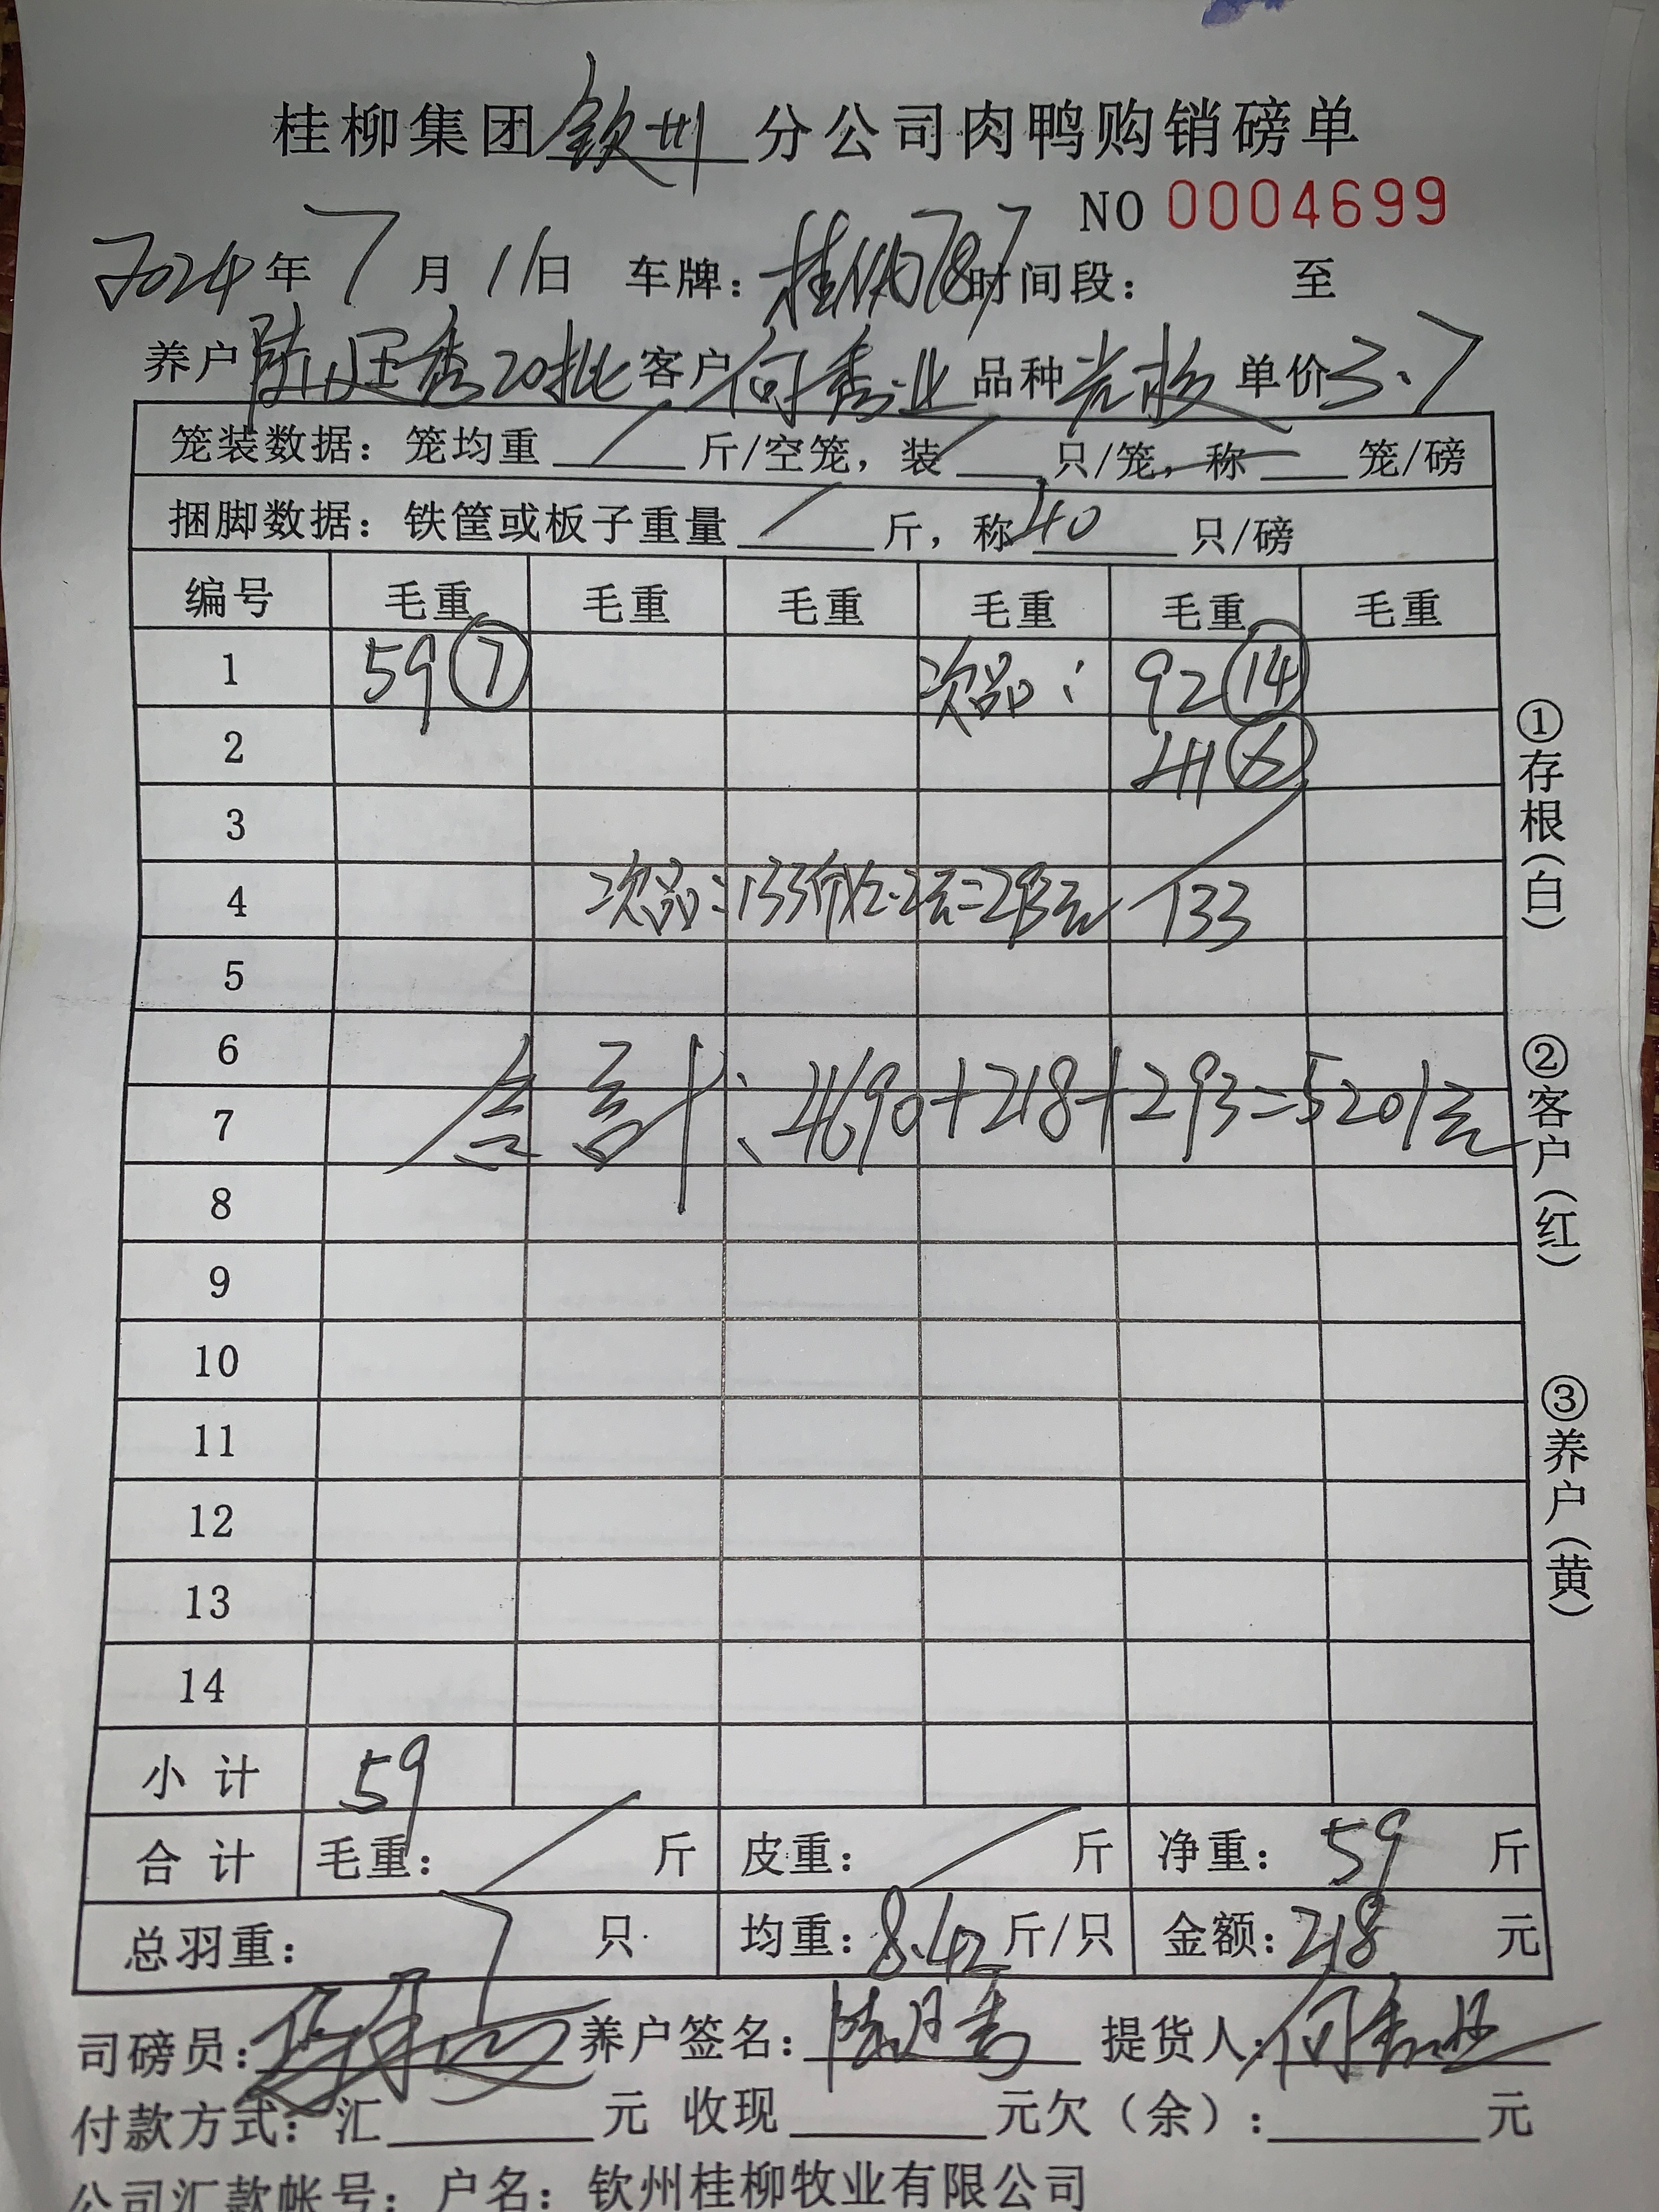 桂柳集团钦州分公司肉鸭购销磅单
NO 0004699
2024年7月11日 车牌： 时间段： 至
养户 20批 客户何秀业 品种 单价3.7
笼装数据：笼均重 斤/空笼，装 只/笼，称 笼/磅
捆脚数据：铁筐或板子重量 斤，称40只/磅
编号 毛重 毛重 毛重 毛重 毛重 毛重
1 59 ⑦ 次品： 92 ⑭
2 41 ⑥
3
4 次品：133斤×2.2元=293元 133
5
6
合计：4690+218+293=5201元
7
8
9
10
11
12
13
14
小计 59
合计 毛重： 斤 皮重： 斤 净重：59斤
总羽重：7只 均重：8.42斤/只 金额：218元
司磅员： 养户签名： 提货人：何秀业
付款方式：汇 元 收现 元欠（余）： 元
公司汇款帐号：户名：钦州桂柳牧业有限公司
①存根（白）
②客户（红）
③养户（黄）